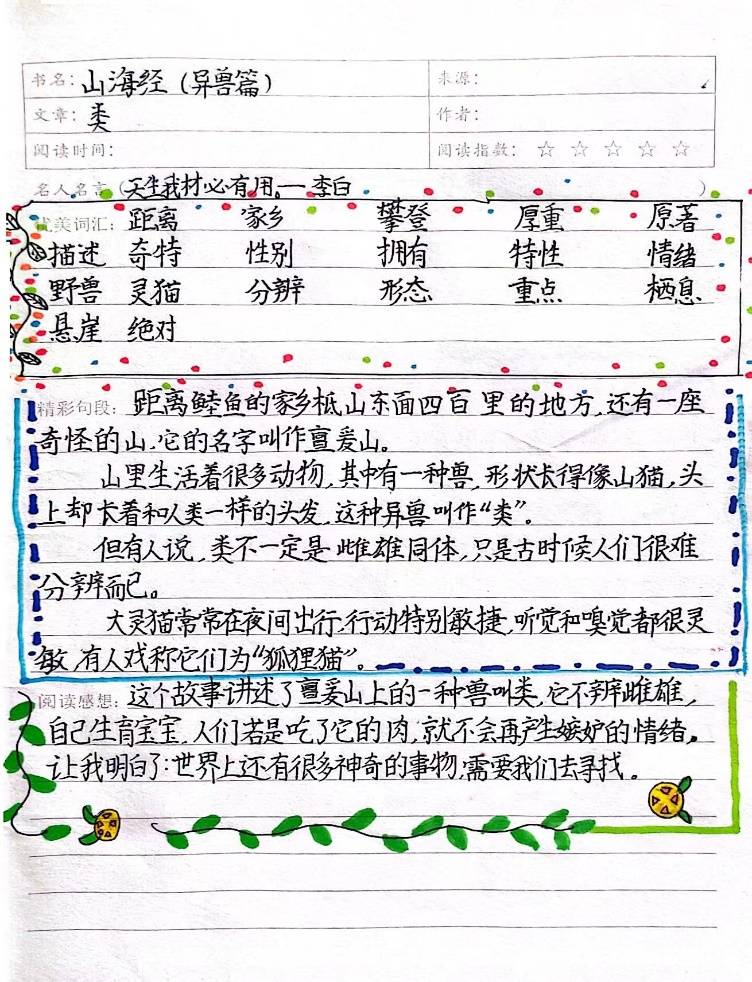 书名：山海经（异兽篇） 来源：
文章：类 作者：
阅读时间： 阅读指数：☆ ☆ ☆ ☆ ☆
名人名言（天生我材必有用。—李白）
优美词汇：距离 家乡 攀登 厚重 原著
描述 奇特 性别 拥有 特性 情绪
野兽 灵猫 分辨 形态 重点 栖息
悬崖 绝对
精彩句段：距离鯥鱼的家乡柢山东面四百里的地方，还有一座
奇怪的山，它的名字叫作亶爰山。
山里生活着很多动物，其中有一种兽，形状长得像山猫，头
上却长着和人类一样的头发，这种异兽叫作“类”。
但有人说，类不一定是雌雄同体，只是古时候人们很难
分辨而已。
大灵猫常常在夜间出行，行动特别敏捷，听觉和嗅觉都很灵
敏，有人戏称它们为“狐狸猫”。
阅读感想：这个故事讲述了亶爰山上的一种兽叫类，它不辨雌雄，
自己生育宝宝，人们若是吃了它的肉，就不会再产生嫉妒的情绪。
让我明白了：世界上还有很多神奇的事物，需要我们去寻找。